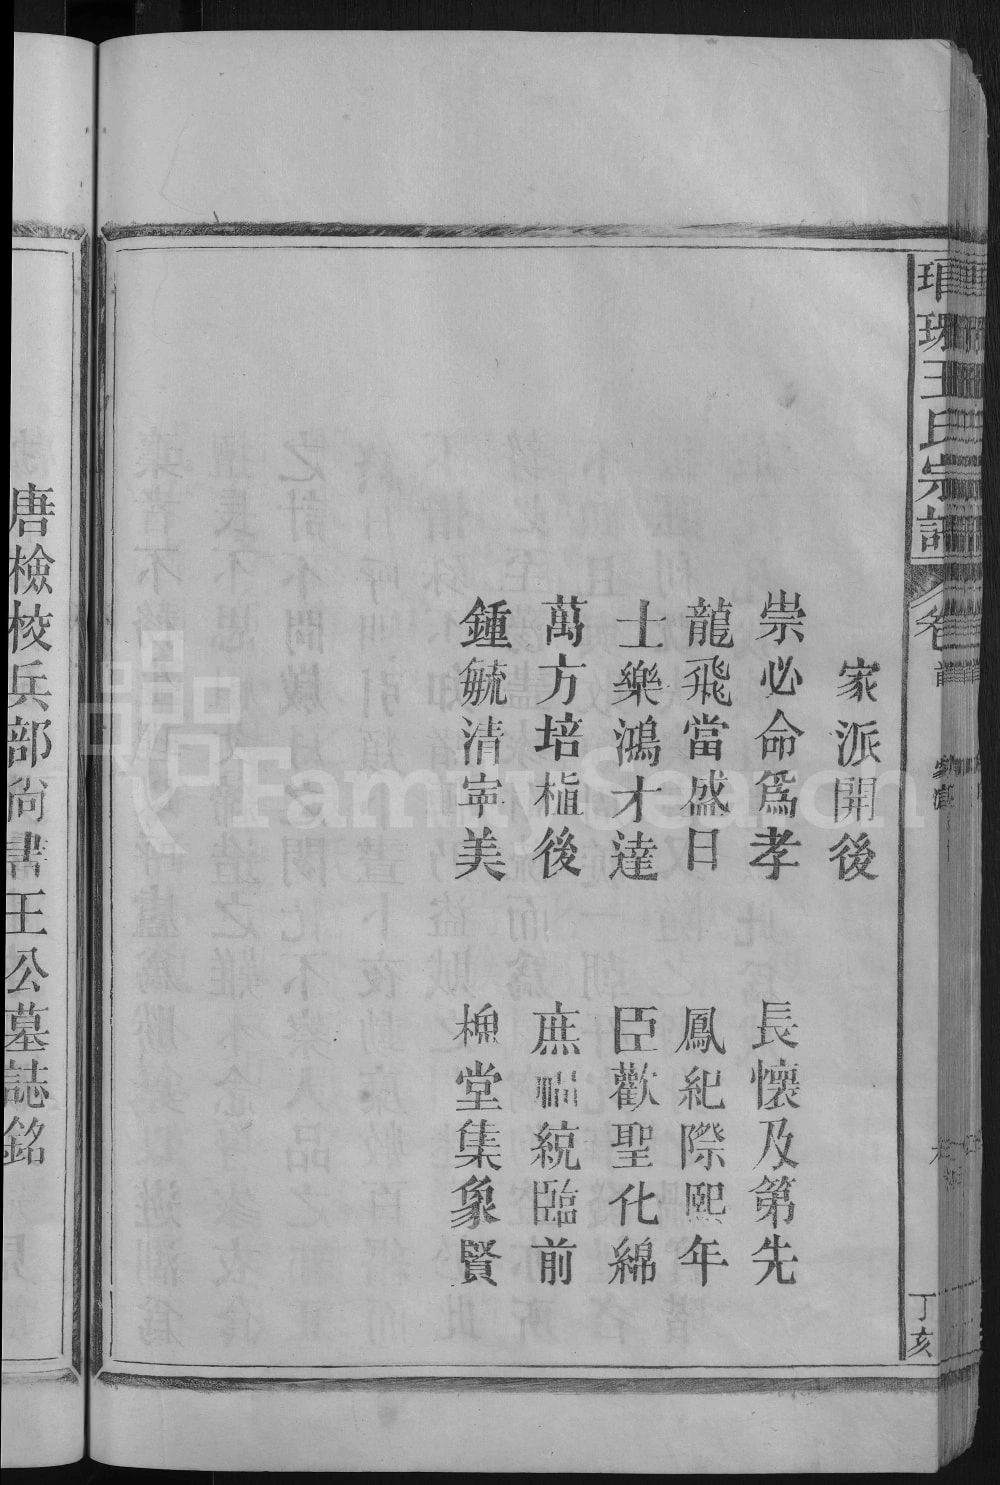 瑯琊王氏宗譜
卷首
丁亥
家派開後
崇必命爲孝 長懷及第先
龍飛當盛日 鳳紀際熙年
士樂鴻才達 臣歡聖化綿
萬方培植後 庶 統臨前
鍾毓清寧美 槐堂集象賢
唐檢校兵部尚書王公墓誌銘
FamilySearch